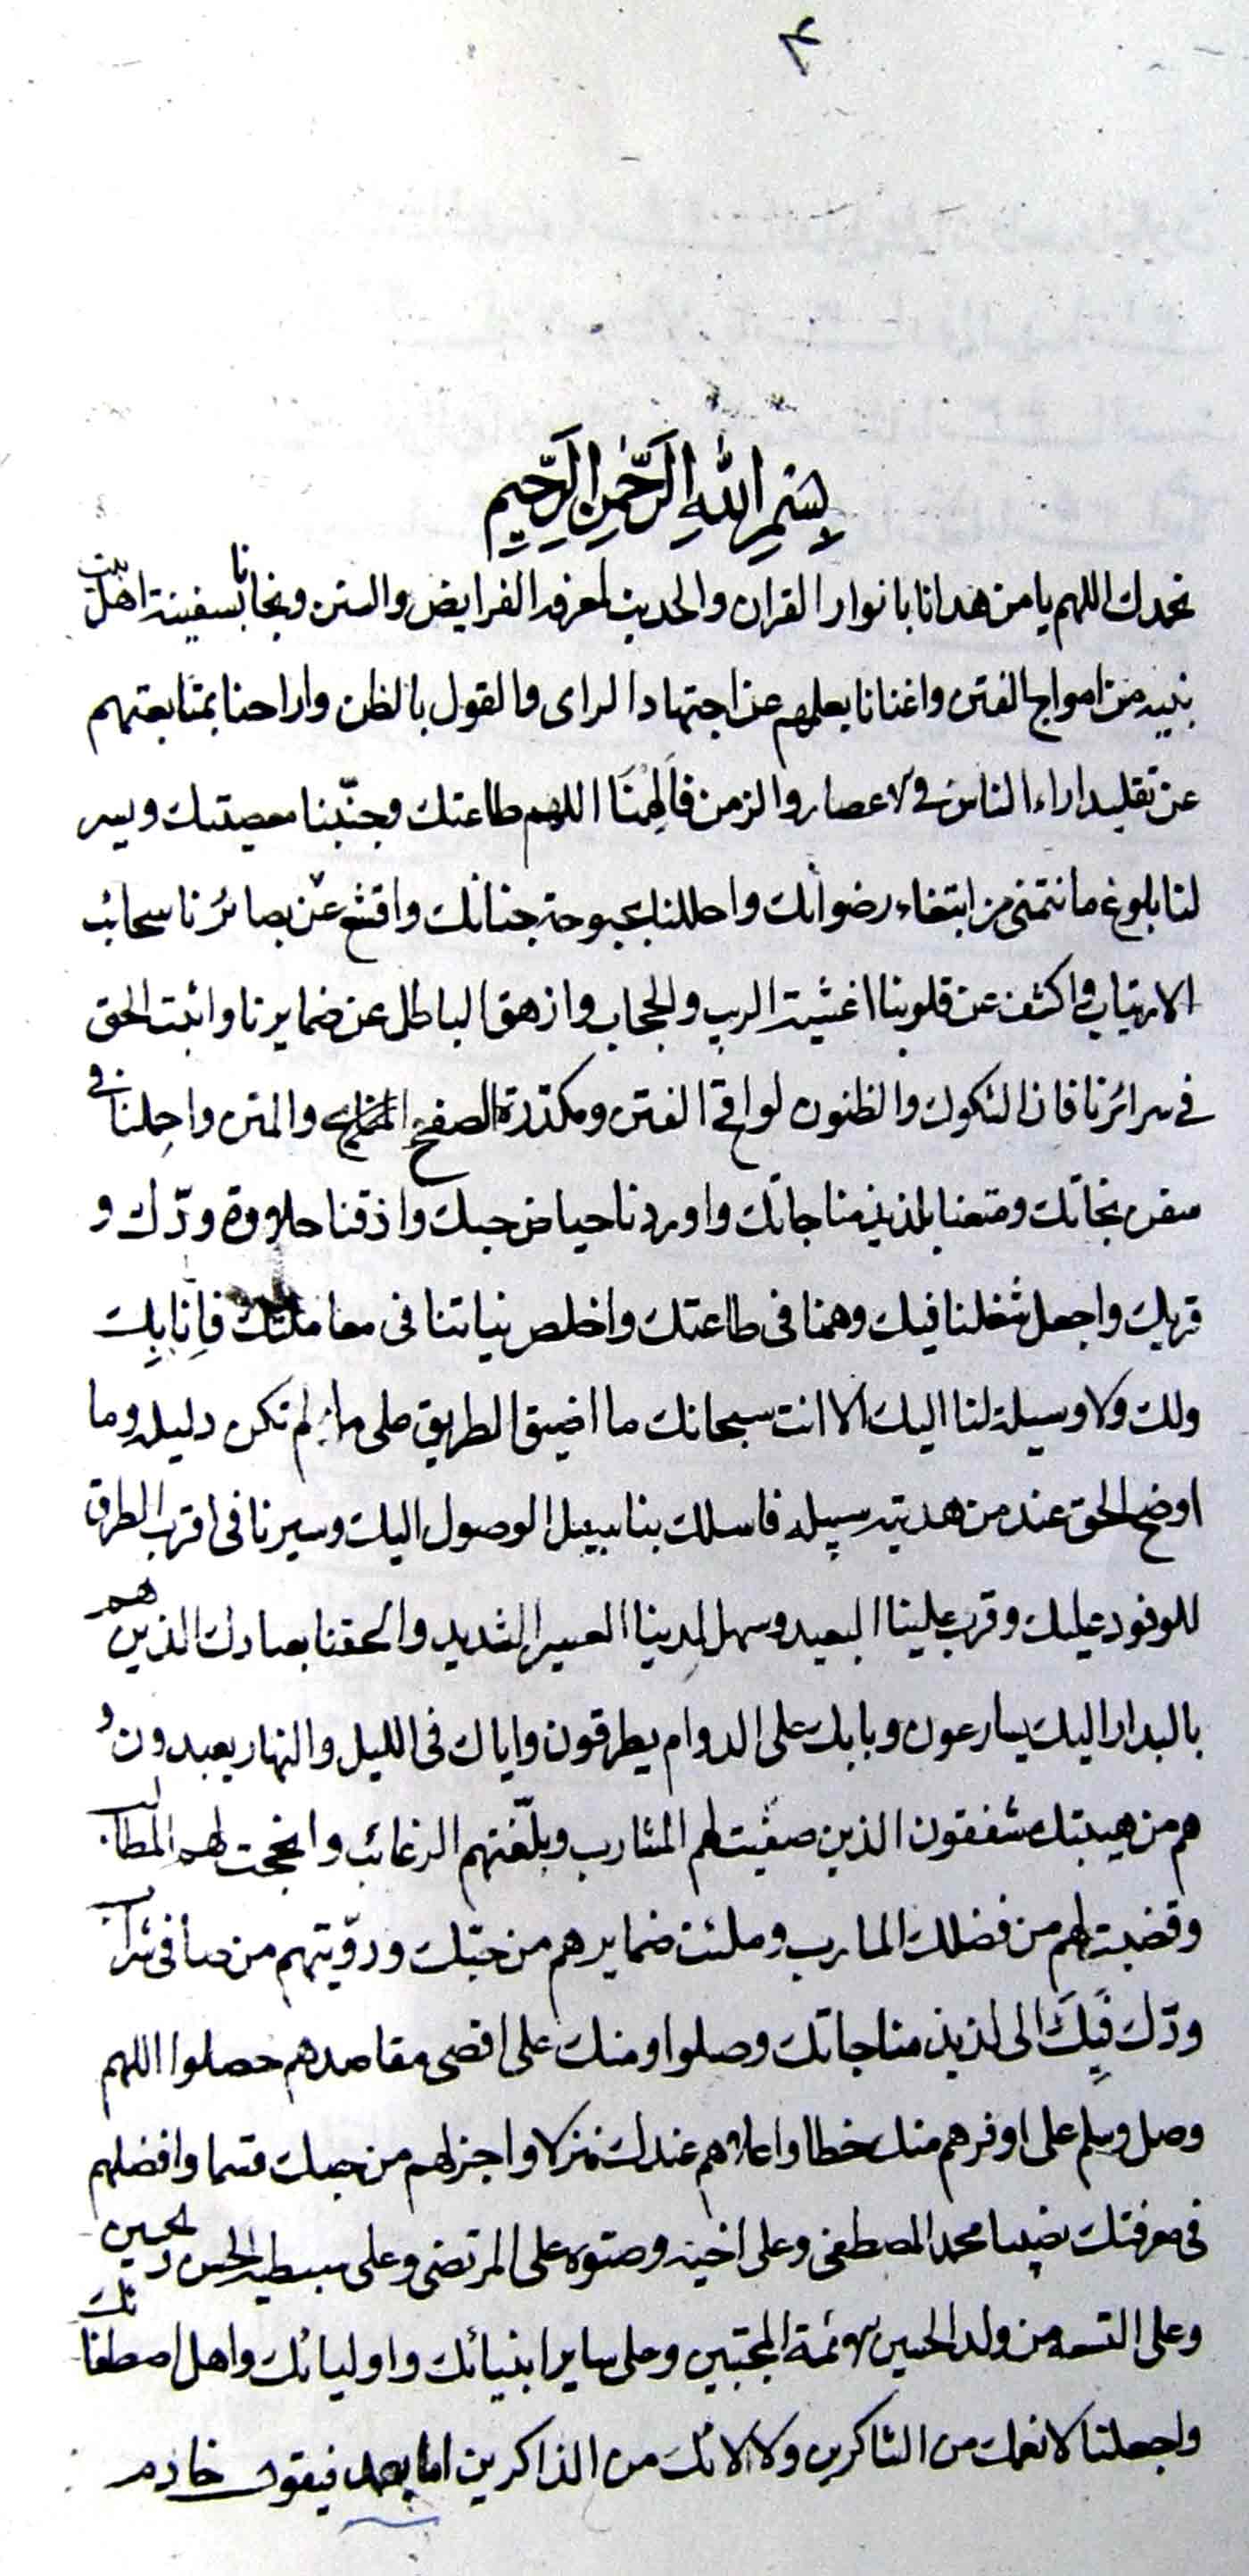 ٢
بِسْمِ اللهِ الرَّحْمٰنِ الرَّحِيمِ
نحمدك اللهم يا من هدانا بانوار القران والحديث لمعرفة الفرايض والسنن ونجانا بسفينة اهل بيت
نبيه من امواج الفتن واغنانا بعلمهم عن اجتهاد الراى والقول بالظن واراحنا بمتابعتهم
عن تقليد اراء الناس فى الاعصار والزمن فَاَلْهِمْنَا اللهم طاعتك وجنّبنا معصيتك ويسر
لنا بلوغ ما نتمنى من ابتغاء رضوانك واحللنا بحبوحة جنانك واقشع عن بصائرنا سحائب
الارتياب واكشف عن قلوبنا اغشية الريب والحجاب وازهق الباطل عن ضمايرنا واثبت الحق
فى سرائرنا فان الشكوك والظنون لواقح الفتن ومكدّرة الصفح المنايح والمنن واحملنا فى
سفن نجاتك ومتعنا بلذيذ مناجاتك واوردنا حياض حبك واذقنا حلاوة ودّك و
قربك واجعل شغلنا فيك وهمنا فى طاعتك واخلص نياتنا فى معاملتك فاِنّا بِك
ولك ولا وسيلة لنا اليك الا انت سبحانك ما اضيق الطريق على من لم تكن دليله وما
اوضح الحق عند من هديته سبيله فاسلك بنا سبيل الوصول اليك وسيرنا فى اقرب الطرق
للوفود عليك وقرب علينا البعيد وسهل لدينا العسير الشديد والحقنا بعبادك الذين هم
بالبدار اليك يسارعون وبابك على الدوام يطرقون واياك فى الليل والنهار يعبدون و
هم من هيبتك مشفقون الذين صفيت لهم المشارب وبلّغتهم الرغائب وانجحت لهم المطالب
وقضيت لهم من فضلك المارب وملئت ضمايرهم من حبّك وروّيتهم من صافى شراب
ودّك فَبِكَ الى لذيذ مناجاتك وصلوا ومنك على اقصى مقاصدهم حصلوا اللهم
وصل وسلم على اوفرهم منك حظا واعلاهم عندك منزلا واجزلهم من حبك قسما وافضلهم
فى معرفتك نصيبا محمد المصطفى وعلى اخيه وصنوه على المرتضى وعلى سبطيه الحسن والحسين
وعلى التسعه من ولد الحسين الائمة المجتبين وعلى ساير انبيائك واوليائك واهل اصطفائك
واجعلنا لانعمك من الشاكرين ولالائك من الذاكرين اما بعد فيقول خادم